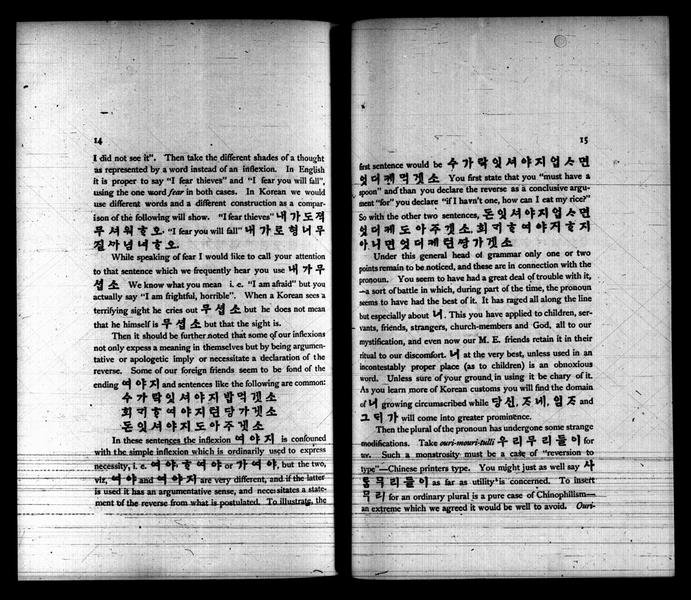 14
I did not see it". Then take the different shades of a thought
as represented by a word instead of an inflexion. In English
it is proper to say "I fear thieves" and "I fear you will fall",
using the one word fear in both cases. In Korean we would
use different words and a different construction as a compar-
ison of the following will show. "I fear thieves" 내가도적
무셔워ᄒᆞ오. "I fear you will fall" 내가로형너무
질까넘녀ᄒᆞ오.
While speaking of fear I would like to call your attention
to that sentence which we frequently hear you use 내가무
셥소 We know what you mean i. e. "I am afraid" but you
actually say "I am frightful, horrible". When a Korean sees a
terrifying sight he cries out 무셥소 but he does not mean
that he himself is 무셥소 but that the sight is.
Then it should be further noted that some of our inflexions
not only expess a meaning in themselves but by being argumen-
tative or apologetic imply or necessitate a declaration of the
reverse. Some of our foreign friends seem to be fond of the
ending 여야지 and sentences like the following are common:
수가락잇셔야지밥먹겟소
희ᄒᆞ여야지련당가겟소
돈잇셔야지도아주겟소
In these sentences the inflexion 여야지 is confouned
with the simple inflexion which is ordinarily used to express
necessity, i. e. 여야, ᄒᆞ여야 or 가여야, but the two,
viz, 여야 and 여야지 are very different, and if the latter
is used it has an argumentative sense, and necessitates a state-
ment of the reverse from what is postulated. To illustrate, the
15
first sentence would be 수가락잇셔야지업스면
엇더케먹겟소 You first state that you "must have a
spoon" and than you declare the reverse as a conclusive argu-
ment "for" you declare "if I havn't one, how can I eat my rice?"
So with the other two sentences, 돈잇셔야지업스면
엇더케도아주겟소, ᄒᆞ여야지
아니면엇더케련당가겟소
Under this general head of grammar only one or two
points remain to be noticed, and these are in connection with the
pronoun. You seem to have had a great deal of trouble with it,
—a sort of battle in which, during part of the time, the pronoun
seems to have had the best of it. It has raged all along the line
but especially about 너. This you have applied to children, ser-
vants, friends, strangers, church-members and God, all to our
mystification, and even now our M. E. friends retain it in their
ritual to our discomfort. 너 at the very best, unless used in an
incontestably proper place (as to children) is an obnoxious
word. Unless sure of your ground in using it be chary of it.
As you learn more of Korean customs you will find the domain
of 너 growing circumscribed while 당신, ᄌᆞ네, 임ᄌᆞ and
그ᄃᆡ가 will come into greater prominence.
Then the plural of the pronoun has undergone some strange
modifications. Take ouri-mouri-tulli 우리무리들이 for
we. Such a monstrosity must be a case of "reversion to
type"—Chinese printers type. You might just as well say 사
무리들이 as far as utility is concerned. To insert
무리 for an ordinary plural is a pure case of Chinophilism—
an extreme which we agreed it would be well to avoid. Ouri-